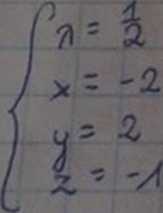 λ = 1/2
x = -2
y = 2
z = -1